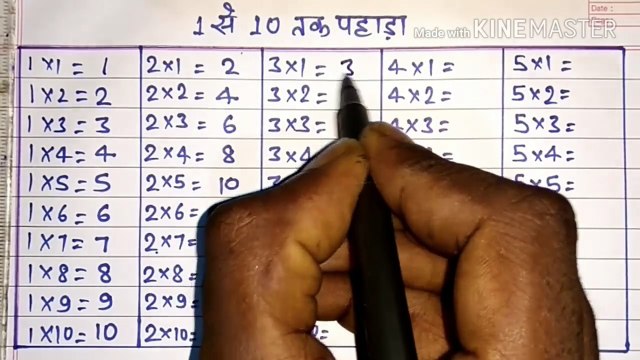 Date :
1 से 10 तक पहाड़ा
Made with KINEMASTER
1×1 = 1 2×1 = 2 3×1 = 3 4×1 = 5×1 =
1×2 = 2 2×2 = 4 3×2 = 4×2 = 5×2 =
1×3 = 3 2×3 = 6 3×3 = 4×3 = 5×3 =
1×4 = 4 2×4 = 8 3×4 5×4 =
1×5 = 5 2×5 = 10 5×5 =
1×6 = 6 2×6 =
1×7 = 7 2×7 =
1×8 = 8 2×8 =
1×9 = 9 2×9 =
1×10 = 10 2×10 =